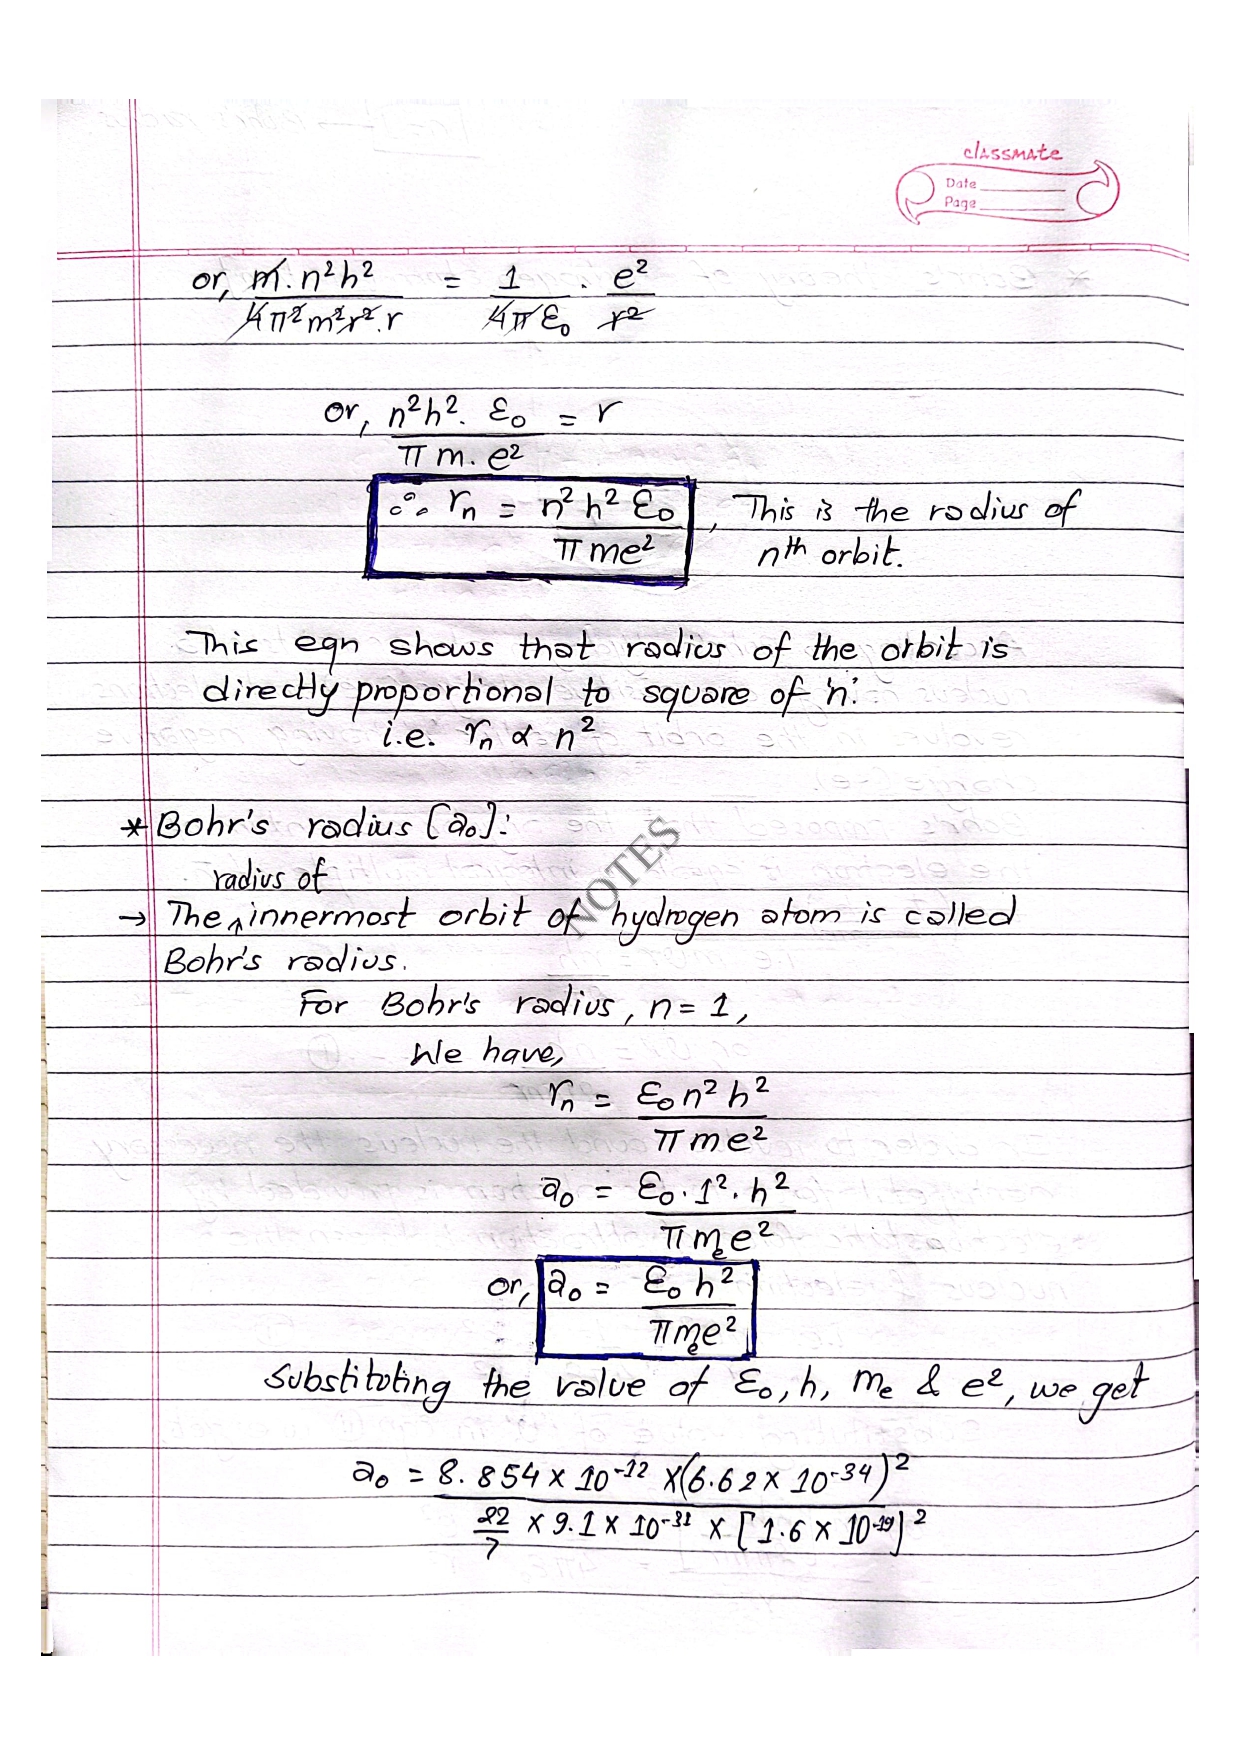 classmate
Date
Page
or, m. n²h² / 4π²m²r².r = 1 / 4πε₀ . e² / r²
or, n²h². ε₀ / π m. e² = r
∴ rₙ = n² h² ε₀ / π me² , This is the radius of
nth orbit.
This eqn shows that radius of the orbit is
directly proportional to square of 'n'.
i.e. rₙ ∝ n²
* Bohr's radius [a₀]:
radius of
→ The ^ innermost orbit of hydrogen atom is called
Bohr's radius.
For Bohr's radius, n = 1,
We have,
rₙ = ε₀ n² h² / π me²
a₀ = ε₀ . 1² . h² / π mₑe²
or, a₀ = ε₀ h² / π mₑe²
Substituting the value of ε₀, h, mₑ & e², we get
a₀ = 8.854 × 10⁻¹² × (6.62 × 10⁻³⁴)² / 22/7 × 9.1 × 10⁻³¹ × [1.6 × 10⁻¹⁹]²
NOTES